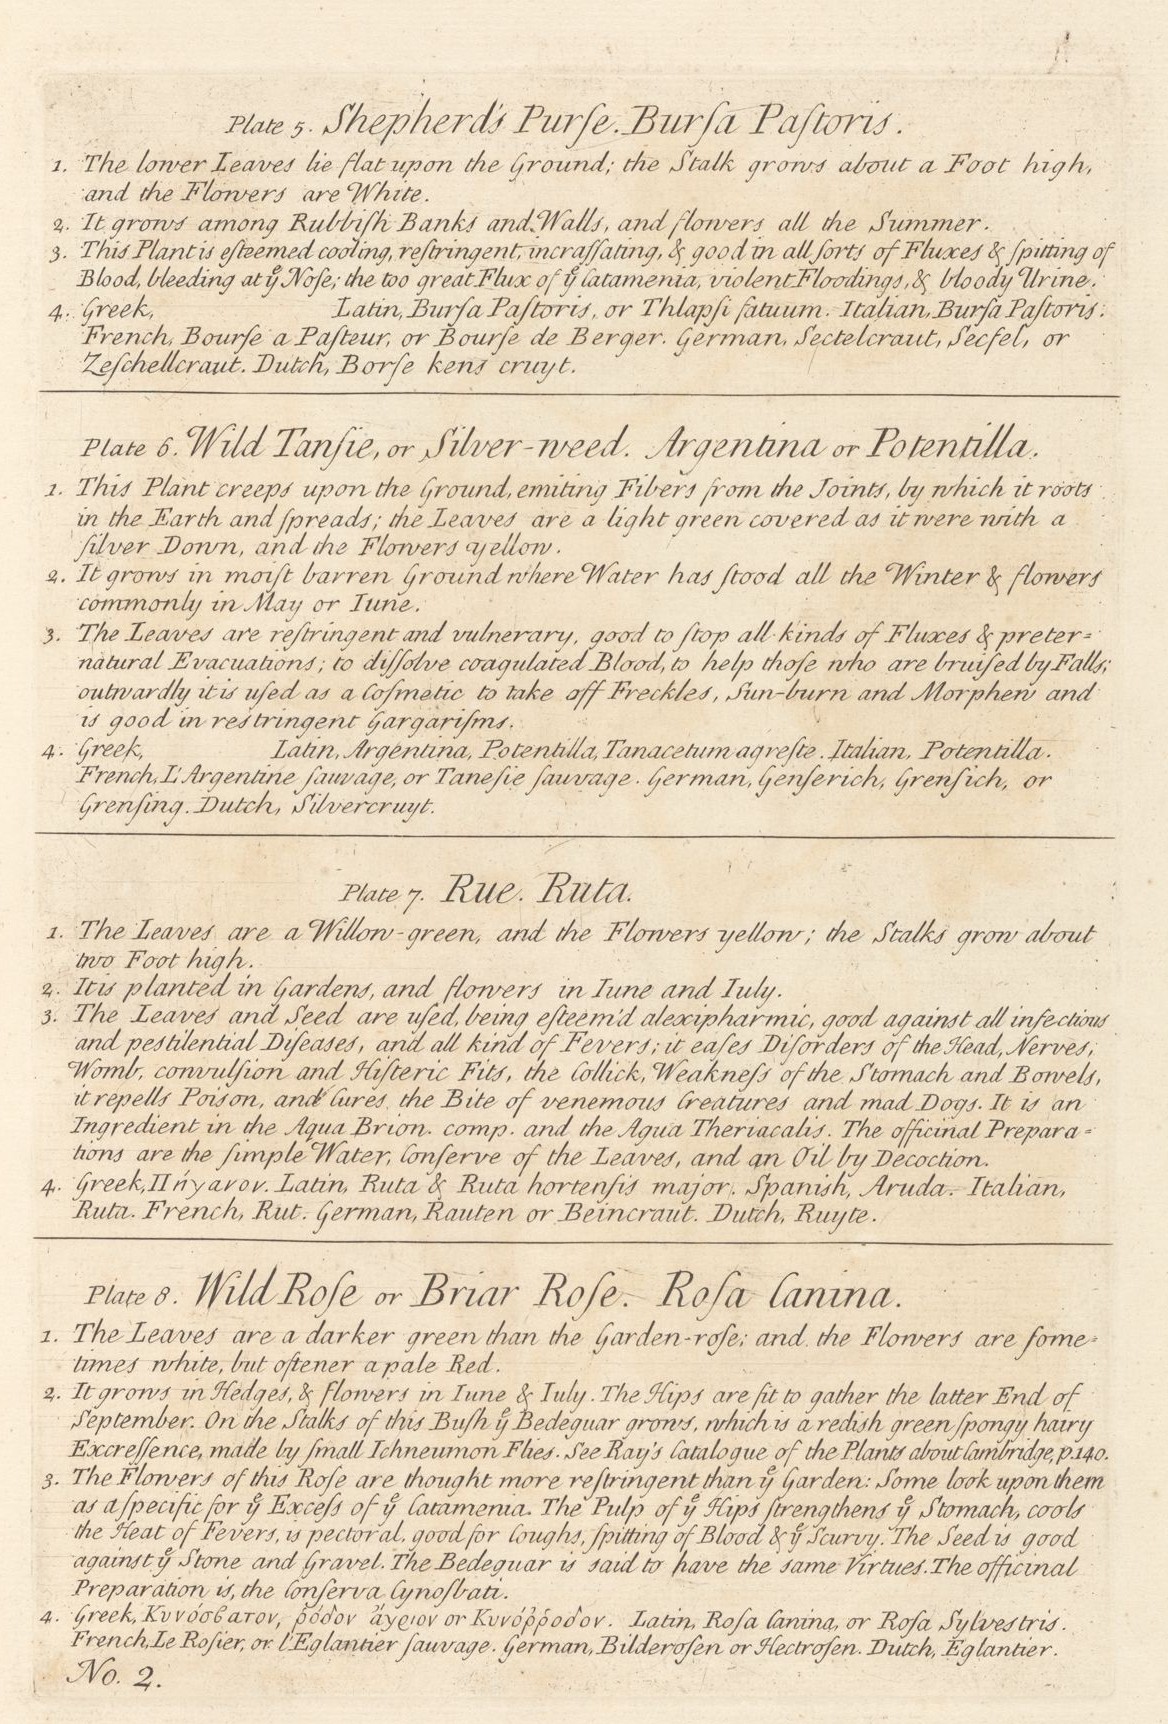 Plate 5. Shepherd's Purſe. Burſa Paſtoris.
1. The lower Leaves lie flat upon the Ground; the Stalk grows about a Foot high,
and the Flowers are White.
2. It grows among Rubbiſh Banks and Walls, and flowers all the Summer.
3. This Plant is eſteemed cooling, reſtringent, incraſſating, & good in all ſorts of Fluxes & ſpitting of
Blood, bleeding at yͤ Noſe; the too great Flux of yͤ Catamenia, violent Floodings, & bloody Urine.
4. Greek, Latin, Burſa Paſtoris, or Thlapſi fatuum. Italian, Burſa Paſtoris.
French, Bourſe a Paſteur, or Bourſe de Berger. German, Sectelcraut, Secfel, or
Zeſchellcraut. Dutch, Borſe kens cruyt.
Plate 6. Wild Tanſie, or Silver-weed. Argentina or Potentilla.
1. This Plant creeps upon the Ground, emiting Fibers from the Joints, by which it roots
in the Earth and ſpreads; the Leaves are a light green covered as it were with a
ſilver Down, and the Flowers yellow.
2. It grows in moiſt barren Ground where Water has ſtood all the Winter & flowers
commonly in May or Iune.
3. The Leaves are reſtringent and vulnerary, good to ſtop all kinds of Fluxes & preter=
natural Evacuations; to diſſolve coagulated Blood, to help thoſe who are bruiſed by Falls;
outwardly it is uſed as a Coſmetic to take off Freckles, Sun-burn and Morphew and
is good in restringent Gargariſms.
4. Greek, Latin, Argentina, Potentilla, Tanacetum agreſte. Italian, Potentilla.
French, L'Argentine ſauvage, or Taneſie ſauvage. German, Genſerich, Grenſich, or
Grenſing. Dutch, Silvercruyt.
Plate 7. Rue. Ruta.
1. The Leaves are a Willow-green, and the Flowers yellow; the Stalks grow about
two Foot high.
2. It is planted in Gardens, and flowers in Iune and Iuly.
3. The Leaves and Seed are uſed, being eſteem'd alexipharmic, good against all infectious
and pestilential Diſeases, and all kind of Fevers; it eaſes Diſorders of the Head, Nerves,
Womb, convulſion and Hiſteric Fits, the Collick, Weakneſs of the Stomach and Bowels,
it repells Poison, and Cures the Bite of venemous Creatures and mad Dogs. It is an
Ingredient in the Aqua Brion. comp. and the Aqua Theriacalis. The officinal Prepara=
tions are the ſimple Water, Conſerve of the Leaves, and an Oil by Decoction.
4. Greek, Πήγανον. Latin, Ruta & Ruta hortenſis major. Spanish, Aruda. Italian,
Ruta. French, Rut. German, Rauten or Beincraut. Dutch, Ruyte.
Plate 8. Wild Roſe or Briar Roſe. Roſa Canina.
1. The Leaves are a darker green than the Garden-roſe; and the Flowers are ſome=
times white, but oftener a pale Red.
2. It grows in Hedges, & flowers in Iune & Iuly. The Hips are fit to gather the latter End of
September. On the Stalks of this Buſh yͤ Bedeguar grows, which is a redish green ſpongy hairy
Excreſſence, made by ſmall Ichneumon Flies. See Ray's Catalogue of the Plants about Cambridge, p. 140.
3. The Flowers of this Roſe are thought more reſtringent than yͤ Garden: Some look upon them
as a ſpecific for yͤ Exceſs of yͤ Catamenia. The Pulp of yͤ Hips ſtrengthens yͤ Stomach, cools
the Heat of Fevers, is pectoral, good for Coughs, ſpitting of Blood & yͤ Scurvy. The Seed is good
against yͤ Stone and Gravel. The Bedeguar is said to have the same Virtues. The officinal
Preparation is, the Conſerva Cynoſbati.
4. Greek, Κυνόσβατον, ῥόδον ἄγριον or Κυνόῤῥοδον. Latin, Roſa Canina, or Roſa Sylvestris.
French, Le Roſier, or l'Eglantier ſauvage. German, Bilderoſen or Hectroſen. Dutch, Eglantier.
No. 2.